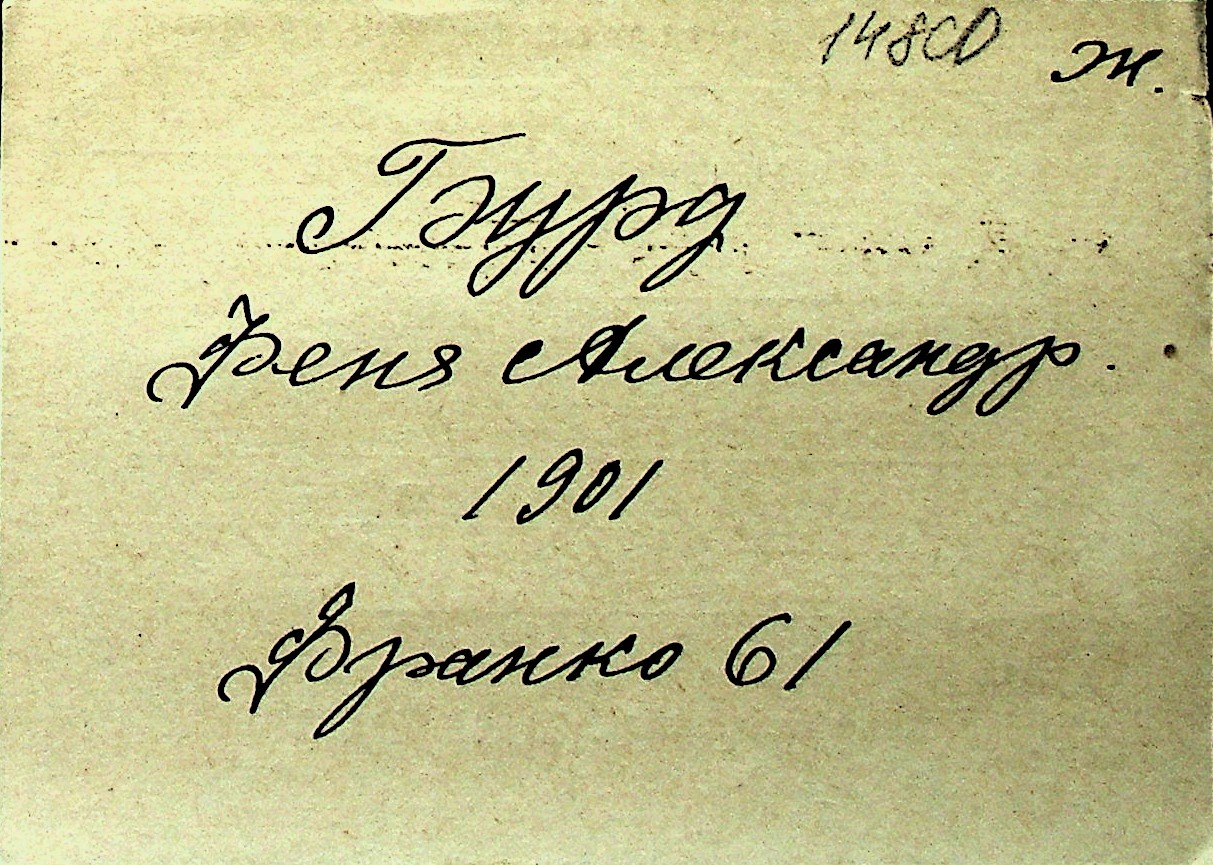 148СД ж.
Гзурд
Феня Александр.
1901
Франко 61